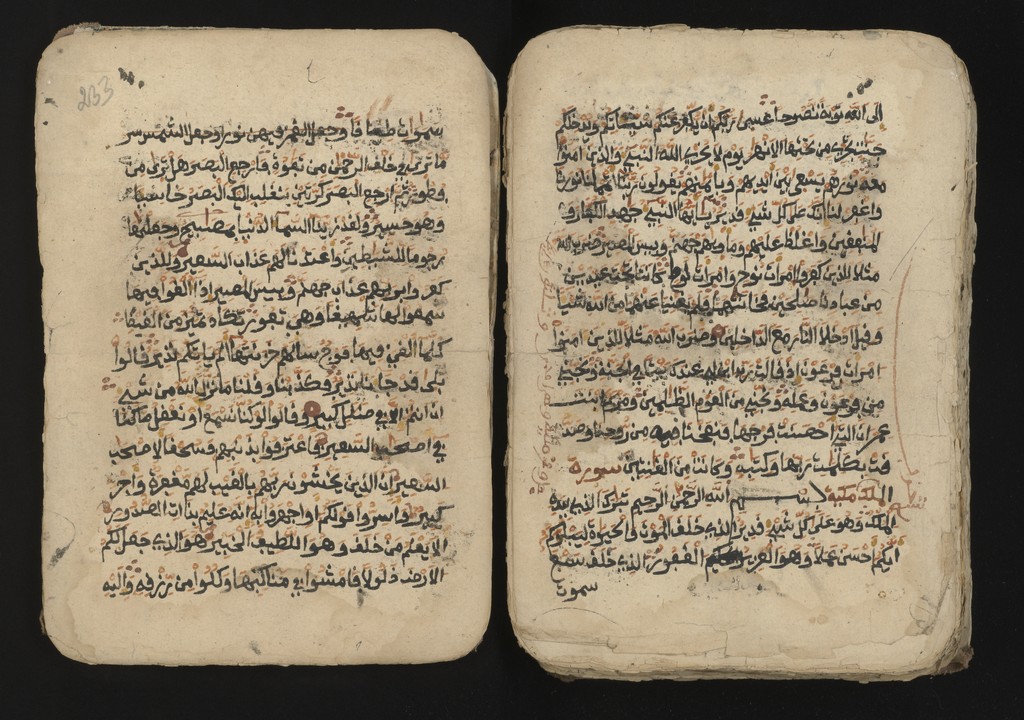 الى الله توبة نصوحا عسى ربكم ان يكفر عنكم سيئاتكم ويدخلكم
جنت تجرى من تحتها الانهر يوم لا يخزى الله النبى والذين امنوا
معه نورهم يسعى بين ايديهم وبايمنهم يقولون ربنا اتمم لنا نورنا
واغفر لنا انك على كل شىء قدير يايها النبى جهد الكفار و
المنفقين واغلظ عليهم وماويهم جهنم وبيس المصير ضرب الله
مثلا للذين كفروا امرات نوح وامرات لوط كانتا تحت عبدين
من عبادنا صلحين فخانتهما فلم يغنيا عنهما من الله شيا
وقيل ادخلا النار مع الداخلين وضرب الله مثلا للذين امنوا
امرات فرعون اذ قالت رب ابن لى عندك بيتا فى الجنة ونجنى
من فرعون وعمله ونجنى من القوم الظلمين ومريم ابنت
عمران التى احصنت فرجها فنفخنا فيه من روحنا وصد
قت بكلمت ربها وكتبه وكانت من القنتين سورة
الملك مكية بسم الله الرحمن الرحيم تبرك الذى بيده
الملك وهو على كل شىء قدير الذى خلق الموت والحيوة ليبلوكم
ايكم احسن عملا وهو العزيز الغفور الذى خلق سبع
سموت
233
سموات طباقا وجعل القمر فيهن نورا وجعل الشمس سر
ما ترى فى خلق الرحمن من تفوت فارجع البصر هل ترى من
فطور ثم ارجع البصر كرتين ينقلب اليك البصر خاسيا
وهو حسير ولقد زينا السما الدنيا بمصبيح وجعلنها
رجوما للشيطين واعتدنا لهم عذاب السعير وللذين
كفروا بربهم عذاب جهنم وبيس المصير اذا القوا فيها
سمعوا لها شهيقا وهى تفور تكاد تميز من الغيظ
كلما القى فيها فوج سالهم خزنتها الم ياتكم نذير قالوا
بلى قد جانا نذير فكذبنا وقلنا ما نزل الله من شىء
ان انتم الا فى ضلل كبير وقالوا لو كنا نسمع او نعقل ما كنا
فى اصحب السعير فاعترفوا بذنبهم فسحقا لاصحب
السعير ان الذين يخشون ربهم بالغيب لهم مغفرة واجر
كبير واسروا قولكم او اجهروا به انه عليم بذات الصدور
الا يعلم من خلق وهو اللطيف الخبير هو الذى جعل لكم
الارض ذلولا فامشوا فى مناكبها وكلوا من رزقه واليه